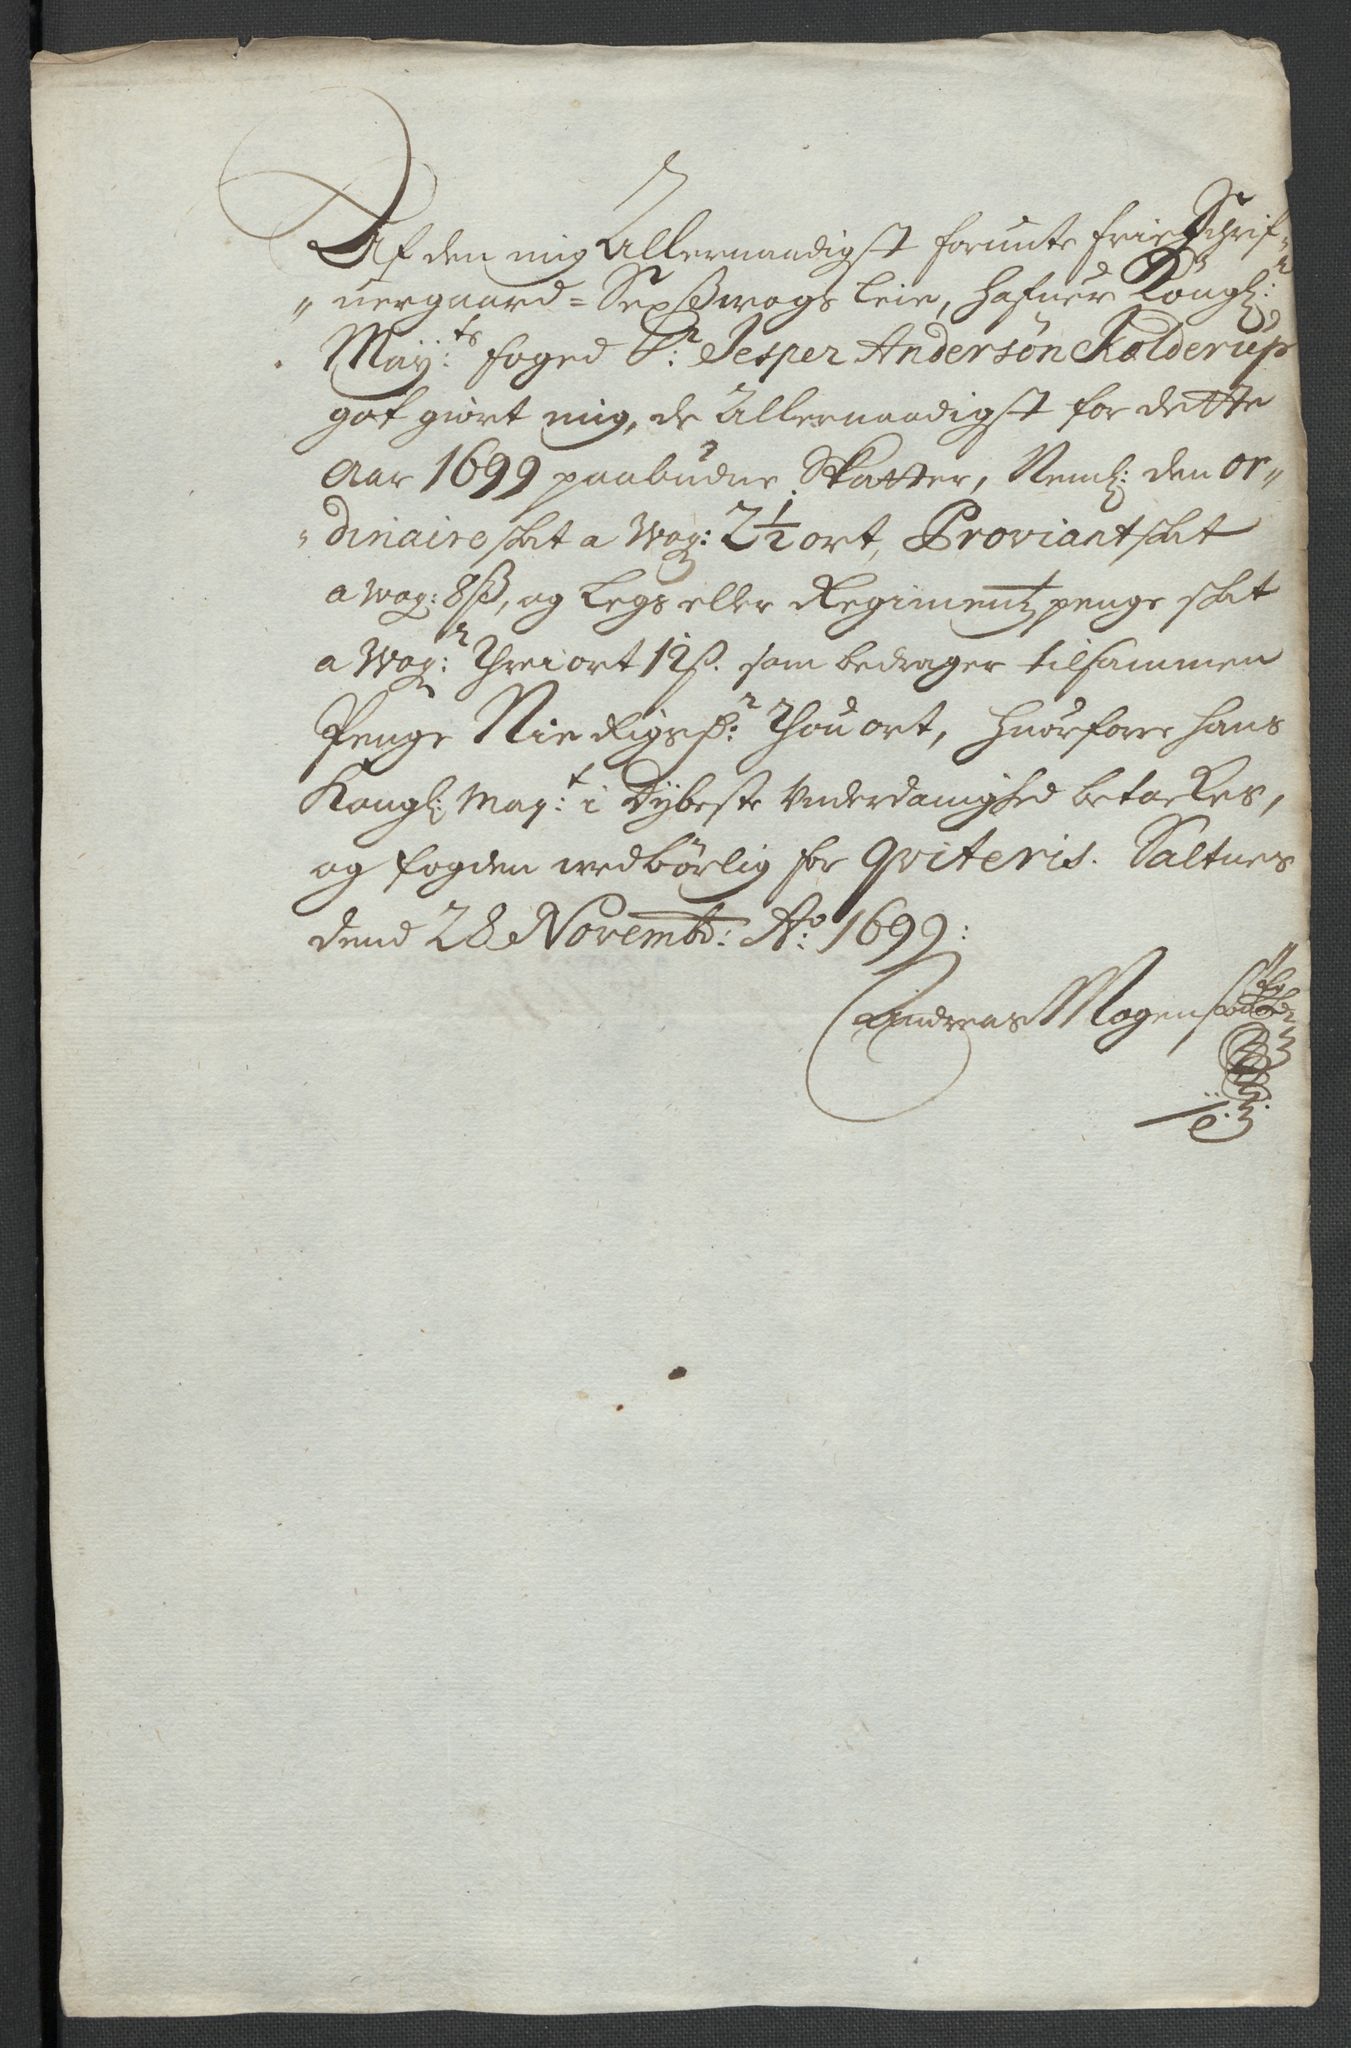 Af den mig Allernaadigst forunte frie Schrif-
uergaard = Sex wogs leie, hafuer Kongl:
May:ts foged Sr: Jesper Andersøn Kolderup
got giort mig, de Allernaadigst for dette
Aar 1699 paabudne Skatter, Neml: den or-
dinaire skat a Wog: 2½ ort, Proviant skat
a wog: 8ß, og Legs eller Regimentz penge skat
a Wog: Threi ort 12ß. som bedrager tilsammen
Penge Nie Rigsdr: Thou ort, huorfore hans
Kongl: May:t i Dybeste Underdanighed betackes,
og fogden wedbørlig for qviteris. Saltnes
dend 28 Novembr: Ao: 1699:
Andreas Mogens